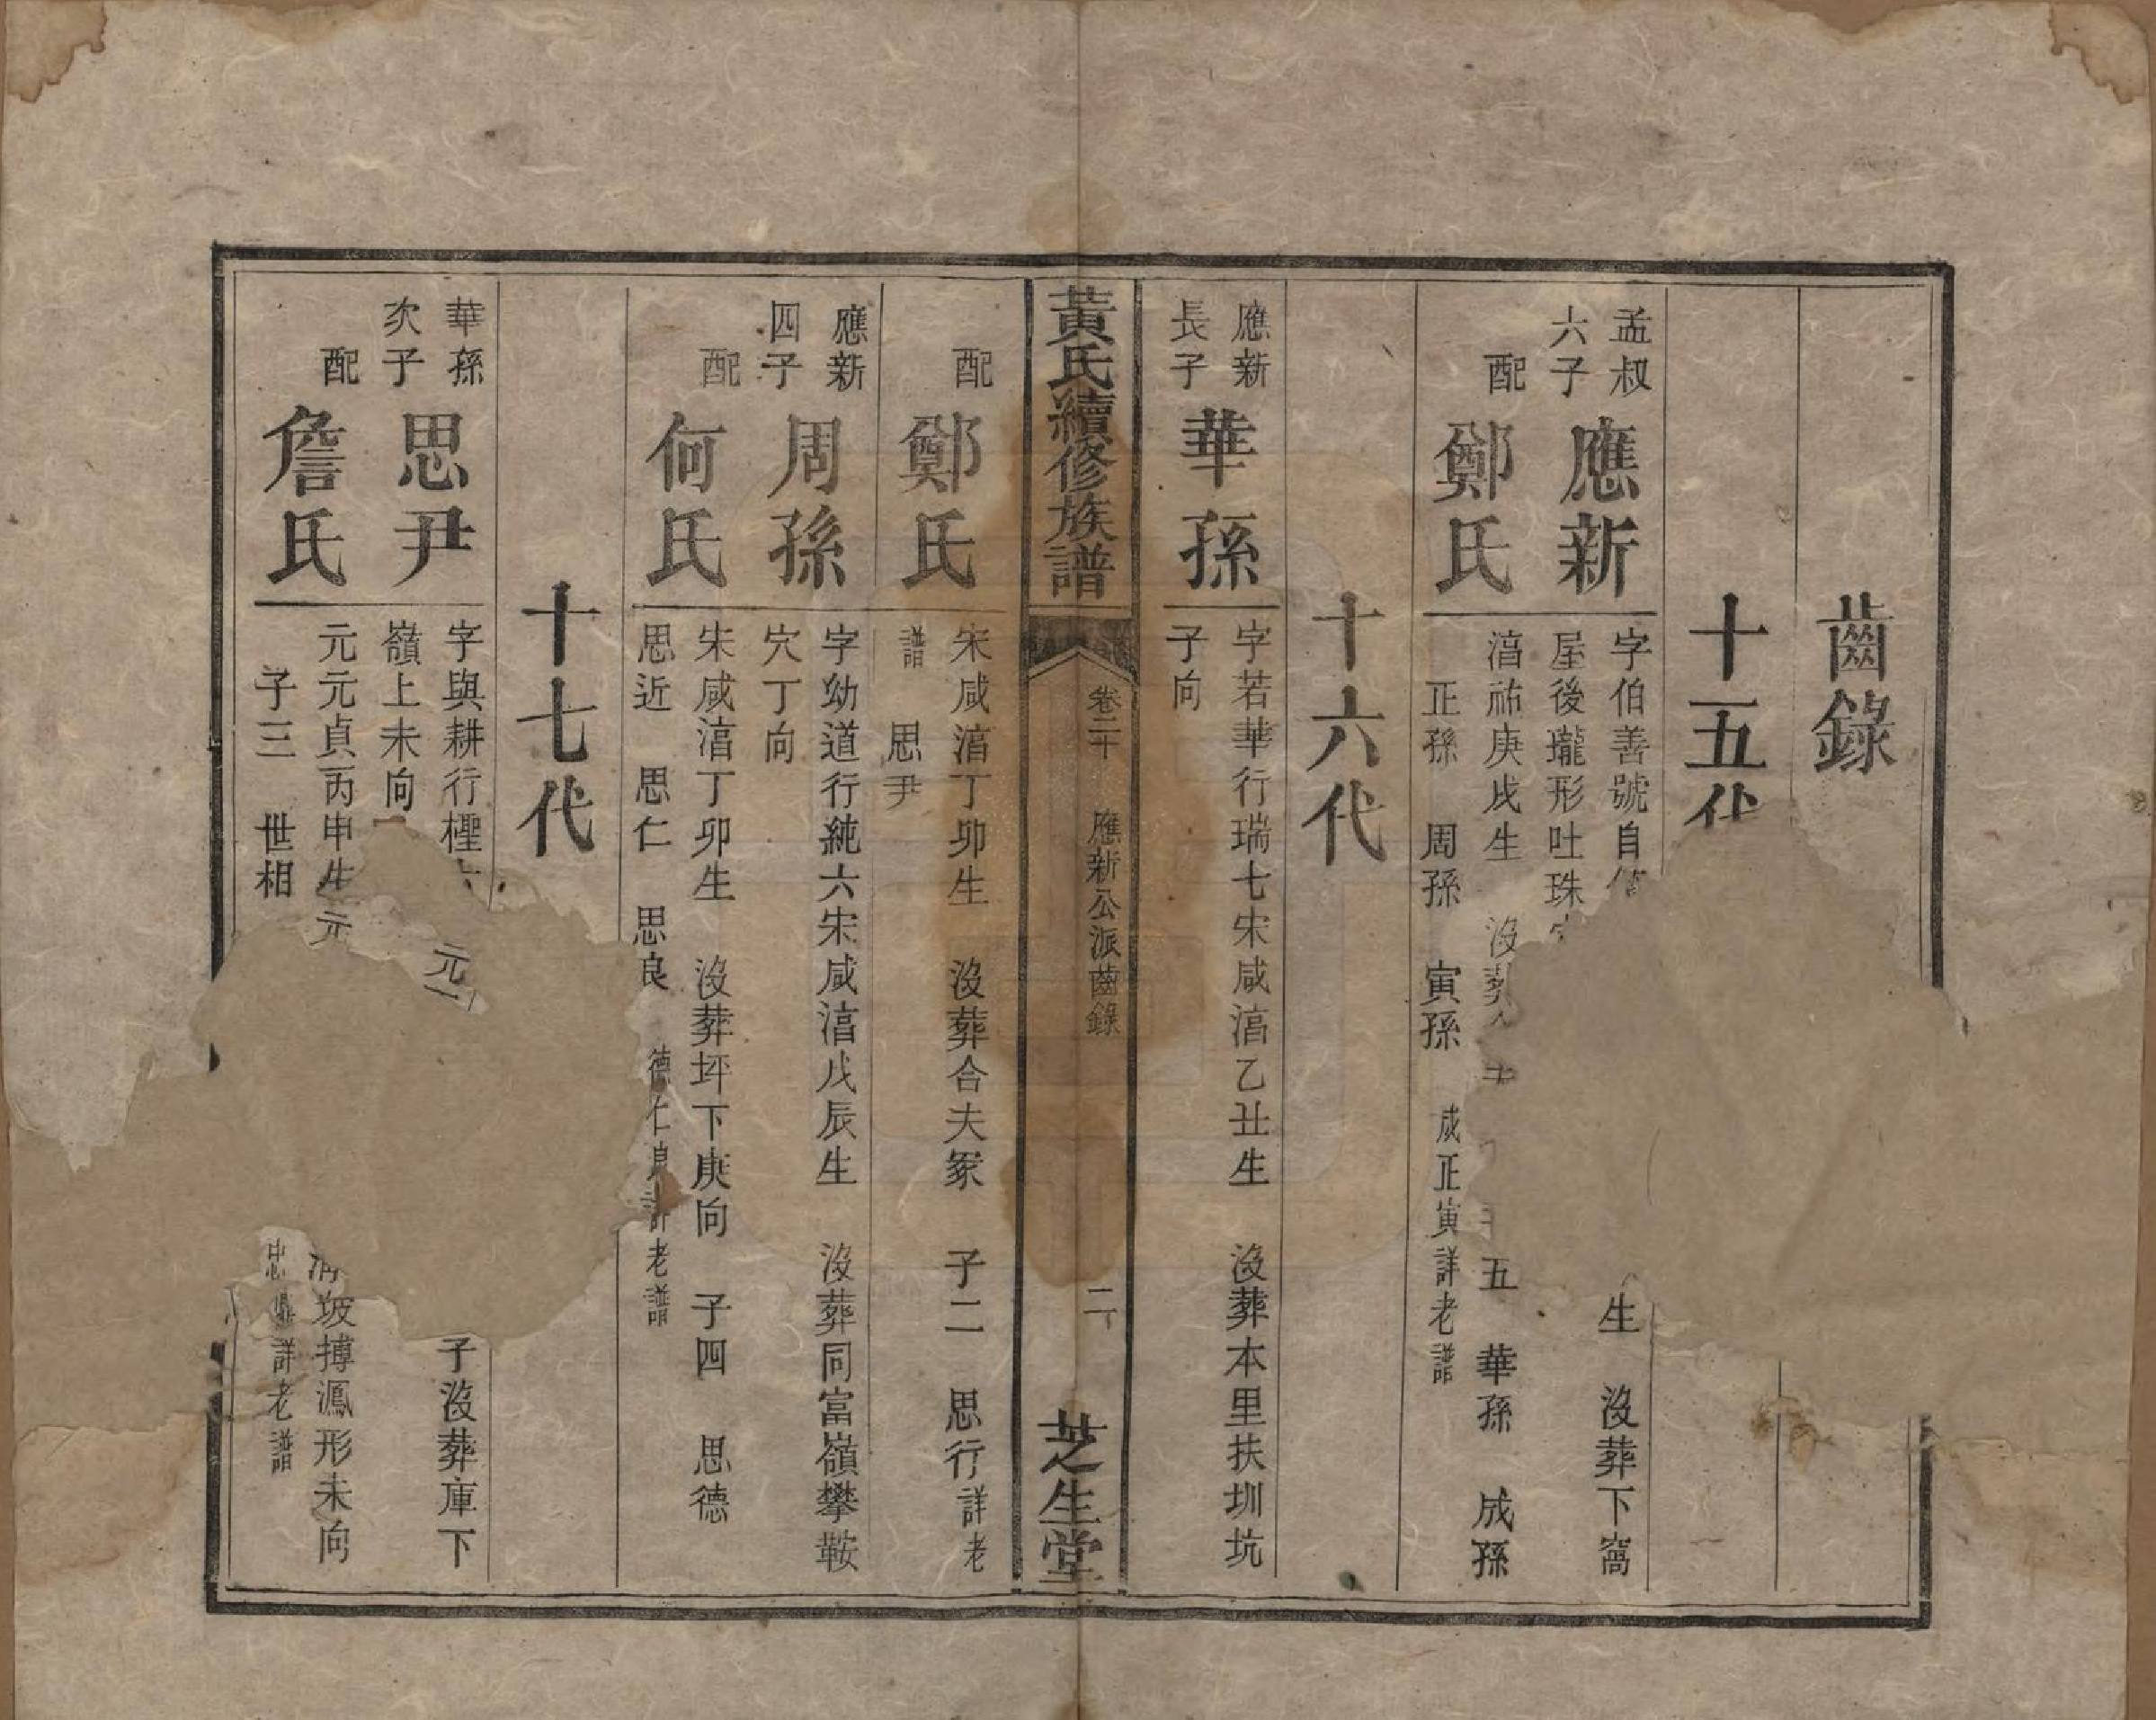 齒錄
十五代
孟叔
六子
應新
字伯善號自
生 沒葬下窩
屋後瓏形吐珠
配
鄭氏
淯祐庚戌生 沒葬
五 華孫 成孫
正孫 周孫 寅孫 成正寅詳老譜
十六代
應新
長子
華孫
字若華行瑞七宋咸淯乙丑生 沒葬本里扶圳坑
子向
黃氏續修族譜
卷二十 應新公派齒錄
二
芝生堂
配
鄭氏
宋咸淯丁卯生 沒葬合夫冢 子二 思行詳老
譜 思尹
應新
四子
周孫
字幼道行純六宋咸淯戊辰生 沒葬同富嶺攀鞍
穴丁向
配
何氏
宋咸淯丁卯生 沒葬坪下庚向 子四 思德
思近 思仁 思良 德仁良詳老譜
十七代
華孫
次子
思尹
字與耕行
元
子沒葬庫下
嶺上未向
配
詹氏
元元貞丙申生元
坡搏鳳形未向
子三 世相
詳老譜